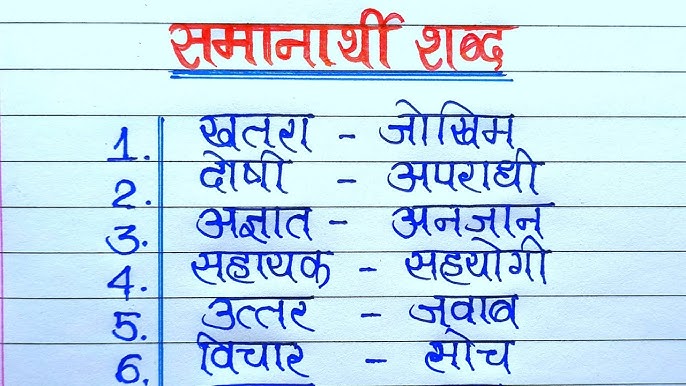 समानार्थी शब्द
1. खतरा - जोखिम
2. दोषी - अपराधी
3. अज्ञात - अनजान
4. सहायक - सहयोगी
5. उत्तर - जवाब
6. विचार - सोच